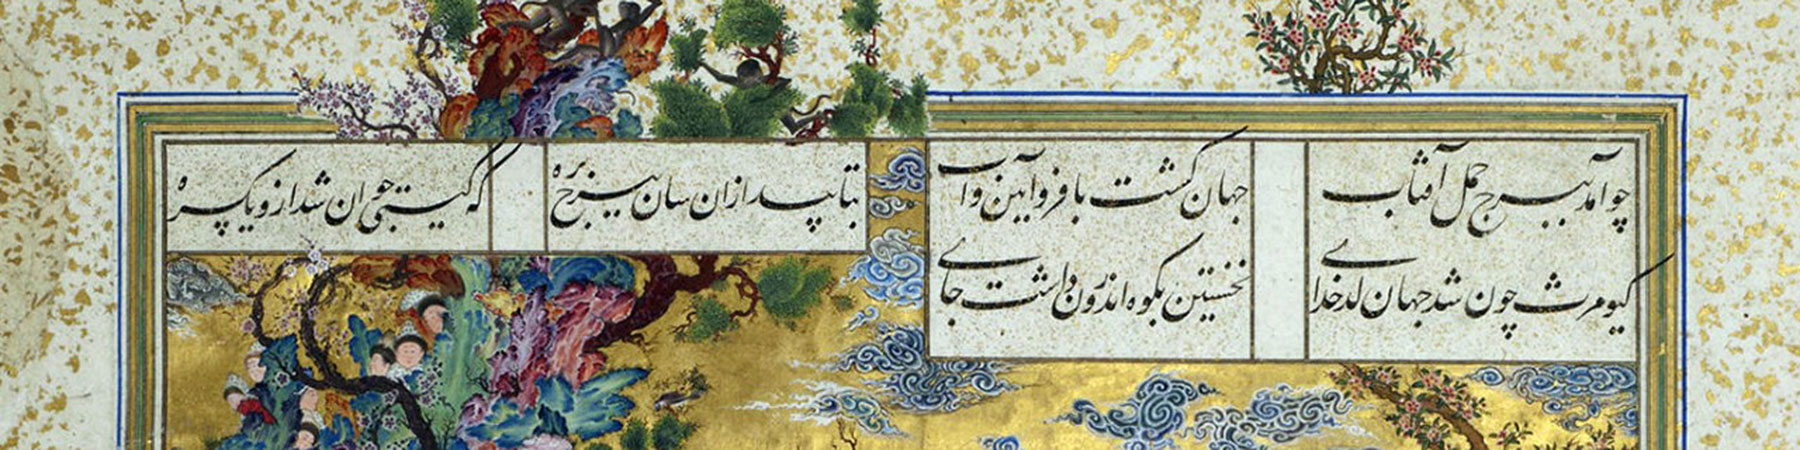 چو آمد ببرج حمل آفتاب جهان گشت با فر و آیین و آب
بتابید ازان سان ببرج بره که گیتی جوان شد ازو یکسره
کیومرث چون شد جهان کدخدای نخستین بکوه اندرون داشت جای